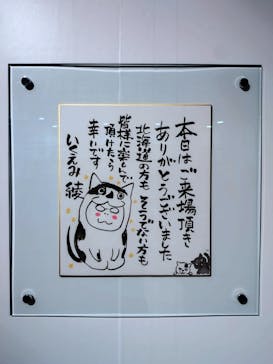 本日はご来場頂き
ありがとうございました
北海道の方も そうでない方も
皆様に楽しんで
頂けたら
幸いです
いくえみ綾